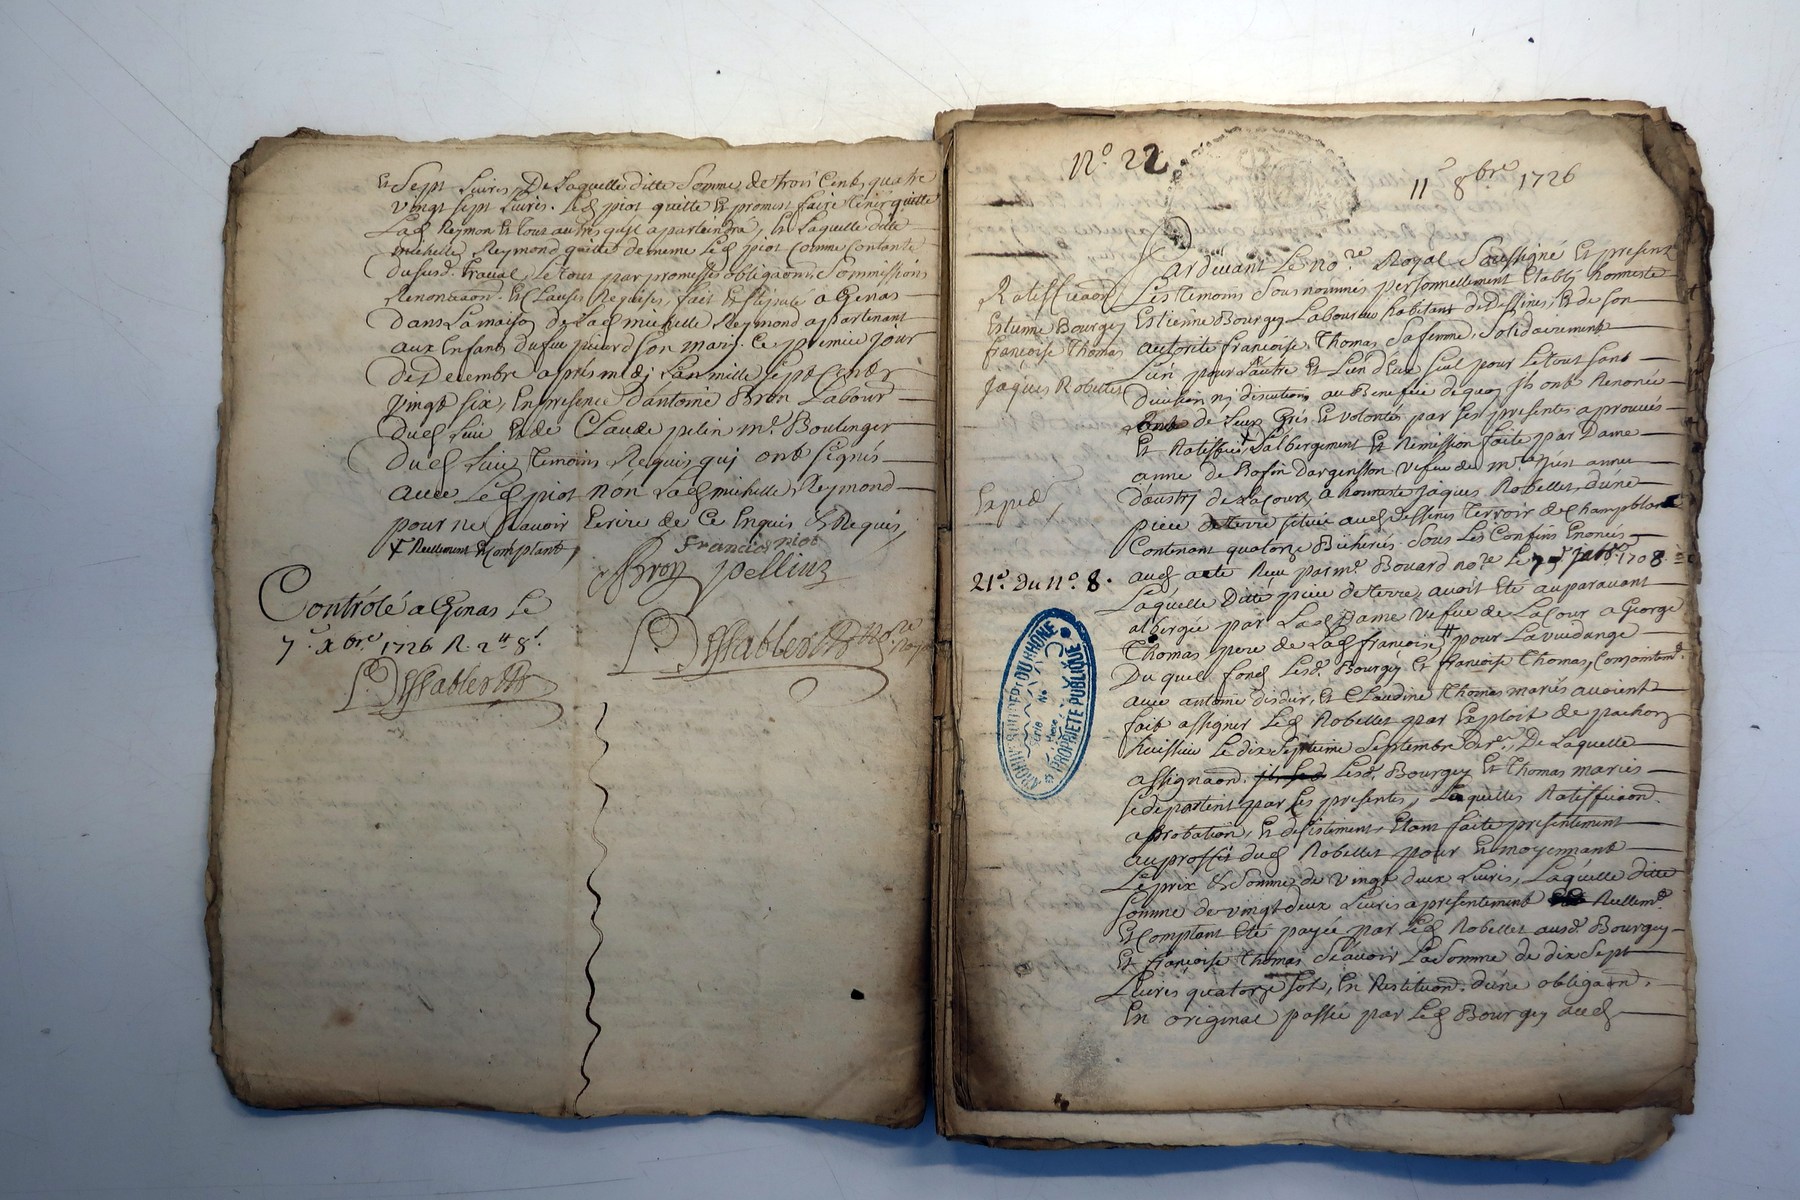 et Sept Livres, De Laquelle ditte Somme de trois Cents quatre
vingt sept Livres. Led piot quitte et promest faire tenir quitte
Lad Reymon et tout autres qu'il apartiendra, et Laquelle ditte
michelle Reymond quitte de meme Led piot Comme Contante
du susd. travail, Le tout par promesses obligaons. Sommissions
Renonciaons. et Clauses Requises, fait et stipulé a Genas
dans La maison de Lad michelle Reymond appartenant
aux Enfants du feu son mary. Ce premier jour
de Decembre apres midi Lan mille sept Cents
vingt six, En presence d'antoine Bron Labour
dud Lieu et de Claude pelin me. Boulenger
dud Lieu temoins Requis qui ont signés
avec Led piot non Lad michelle Reymond
pour ne sçavoir Ecrire de Ce Enquis & Requis,
+ Reellement et Comptant,
francois piot
Bron pellin
Contrôlé a Genas Le
7e. xbre 1726 R. 2tt 8s.
No. 22
11e 8bre 1726
Pardevant Le nore Royal Soussigné et presents
Les temoins Sousnommés personnellement Etably honneste
Estienne Bourgey Laboureur habitant de Dessines, et de Son
autorité francoise Thomas Sa femme, Solidairement
L'un pour L'autre et L'un d'Eux Seul pour Le tout sans
division ni discution au Benefice de quoy jls ont Renoncé
de Leurs Grés et volontés par Les presentes aprouvés
et Ratiffiés L'albergement et Remission faite par Dame
anne de Bosin Dargenson vefue de mre.
de La Cour, a honneste jaques Robellet, d'une
piece de terre située aud Dessines terroir de Champblanc
Contenant quatorze Bicherées Sous Les Confins Enoncés
aud acte Receu par me. Bouard nore Le 1708
Laquelle Ditte piece de terre, avoit Eté auparavant
albergée par Lad Dame vefue de La Cour a George
Thomas pere de Lad francoise, pour La vuidange
Du quel fond Lesd. Bourgey et francoise Thomas, Conjointemt.
avec antoine disdier, et Claudine Thomas mariés avoient
fait assigner Led Robellet par Exploit de pachon
huissier Le dix Septieme Septembre der., De Laquelle
assignaon. Lesd. Bourgey et Thomas mariés
Se departent par Les presentes, Laquelles Ratifficaon.
aprobation, et desistement, Etant faite presentement
au proffit dud Robellet pour et moyennant
Le prix & Somme de vingt deux Livres, Laquelle ditte
Somme de vingt deux Livres a presentement Reellemt.
et Comptant Eté payée par Led Robellet ausd. Bourgey
et françoise Thomas Sçavoir La Somme de dix Sept
Livres quatorze Sol, En Restituon. d'une obligaon,
En original passée par Led Bourgey aud
Ratifficaon
Estienne Bourgey
françoise Thomas
Jaques Robellet
Exped
21e. Du No. 8.
DU RHONE
PROPRIÉTÉ PUBLIQUE